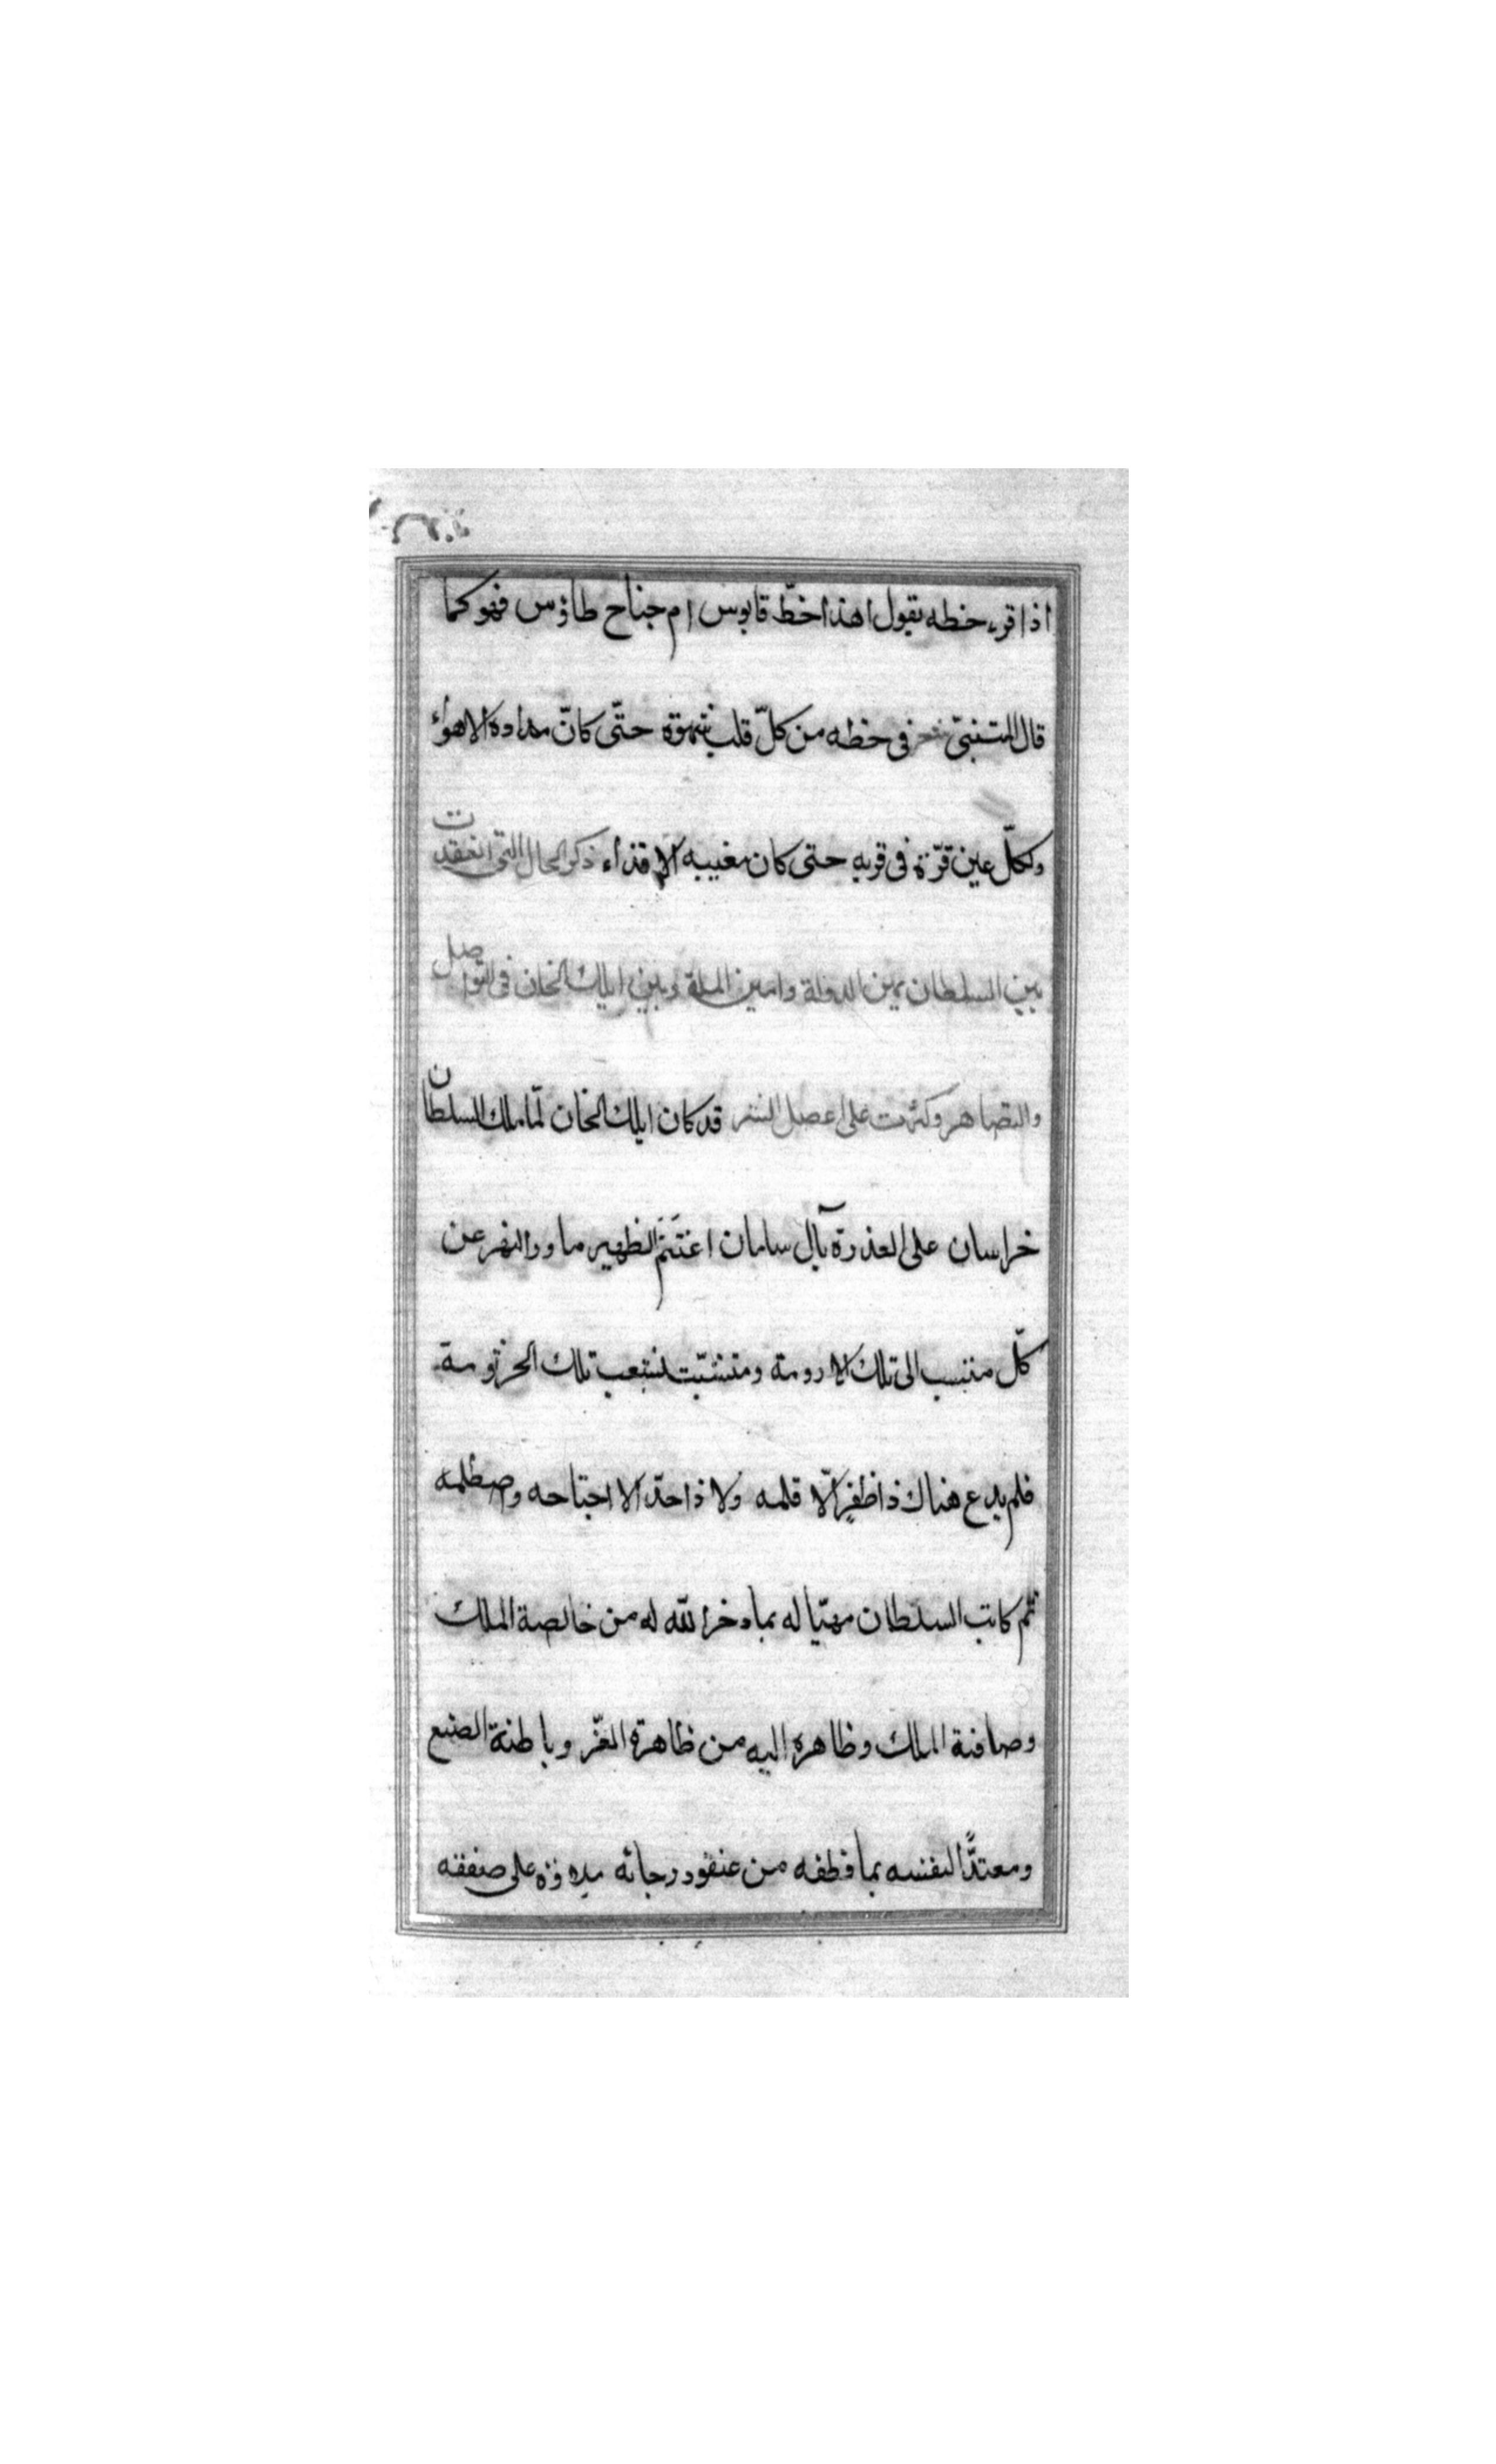 اذا قرء خطه يقول اهذا خطّ قابوس ام جناح طاؤس فهو كما
قال المتنبىّ شعر فى خطه من كلّ قلب شهوة حتّى كانّ مداده الاهواء
ولكلّ عين قرّة فى قربه حتى كان مغيبه الاقذاء ذكر الحال التى انعقدت
بين السلطان يمين الدولة وامين الملة وبين ايلك الخان فى التواصل
والتصاهر وكثرت على اعصل الشر قد كان ايلك الخان لمّا ملك السلطان
خراسان على العذرة بآل سامان اغتنم لتظهير ماورالنهر عن
كلّ منتسب الى تلك الارومة ومتشبّث بشعب تلك الجرثومة
فلم يدع هناك ذا ظفرٍ الّا قلمه ولا ذا حدّ الا اجتاحه واصطلمه
ثم كاتب السلطان مهنّيا له بما دخر الله له من خالصة الملك
وصافنة الملك وظاهره اليه من ظاهرة العزّ وباطنة الصنع
ومعتدًّا لنفسه بما قطفه من عنقود رجائه على صفقه